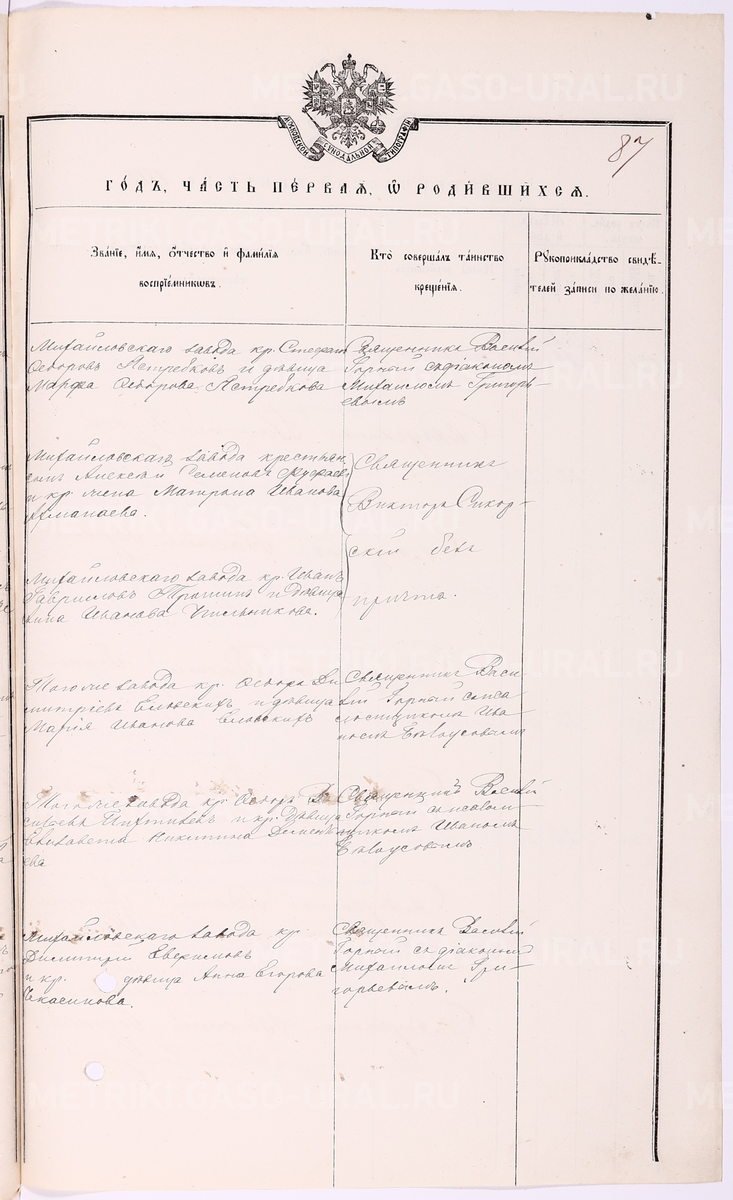 METRIKI.GASO-URAL.RU
МОСКОВСКОЙ СѴНОДАЛЬНОЙ ТИПОГРАФІИ
87
ГО́ДЪ, ЧА́СТЬ ПЕ́РВАЯ, Ѡ҆ РОДИ́ВШИХСЯ.
Зва́нїе, и҆́мя, ѻ҆́тчество и҆ фами́лїя
воспрїе́мникѡвъ.
Кто̀ соверша́лъ та́инство
креще́нїя.
Рꙋкоприкла́дство свидѣ́-
телей за́писи по жела́нїю.
Михайловскаго завода кр. Стефанъ
Ѳедоровъ Ястребковъ и дѣвица
Марфа Ѳедорова Ястребкова
Священникъ Василій
Горный съ діакономъ
Михаиломъ Григорь-
евымъ
Михайловскаго завода крестьян
Алексѣй Семеновъ
и кр. жена Матрона Иванова
Священникъ
Викторъ Сикор-
скій безъ
причта.
Михайловскаго завода кр. Иванъ
Гавриловъ и дѣвица
Иванова
Тогоже завода кр. Ѳедоръ Ди
митріевъ и дѣвица
Марія Иванова
Священникъ Васи
лій Горный съ пса
ломщикомъ Ива
номъ Бѣлоусовымъ
Тогоже завода кр. Ѳедоръ Ва
сильевъ и кр. дѣвица
Елизавета Никитина Демен
ева
Священникъ Василій
Горный съ псалом-
щикомъ Иваномъ
Бѣлоусовымъ.
Михайловскаго завода кр.
Димитрій
и кр. дѣвица Анна Егорова
Священникъ Василій
Горный съ діакономъ
Михаиломъ Гри-
горьевымъ.
METRIKI.GASO-URAL.RU